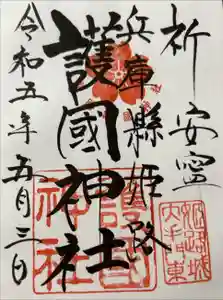 祈安霊
兵庫縣姫路
護國神社
令和五年五月三日
護国
神社
姫路城
大手東